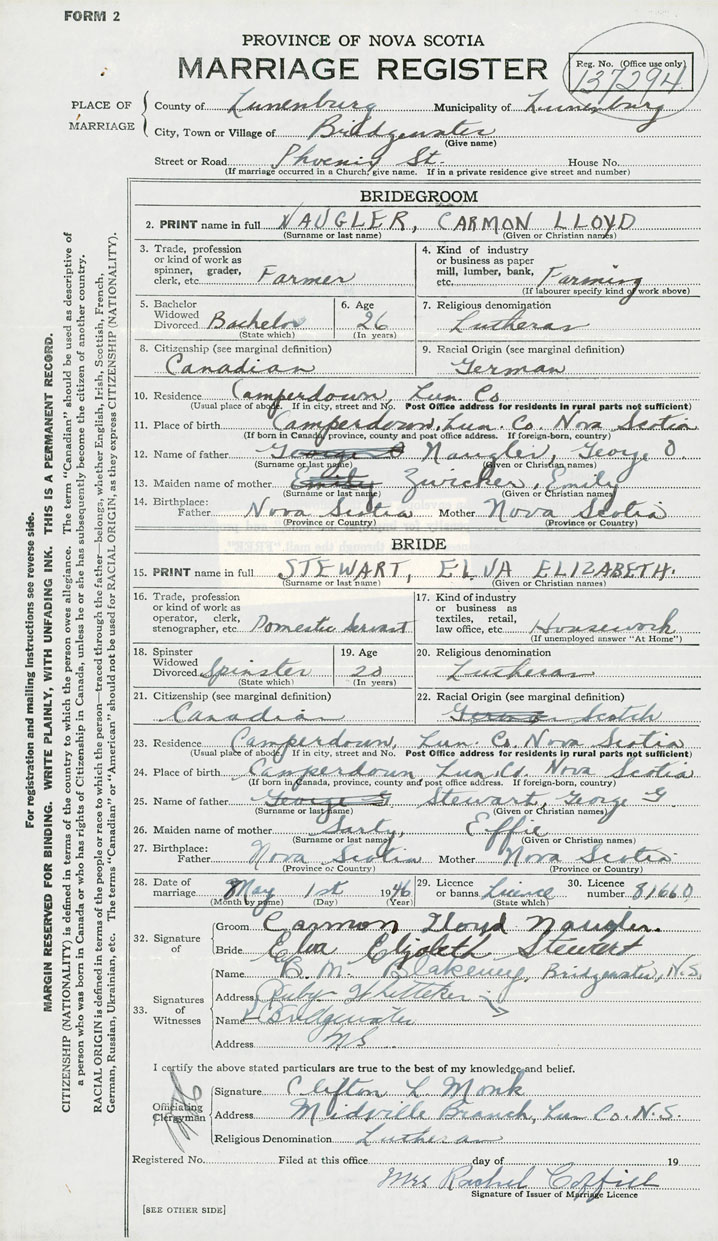 FORM 2
PROVINCE OF NOVA SCOTIA
MARRIAGE REGISTER
Reg. No. (Office use only)
137294
PLACE OF MARRIAGE
County of Lunenburg Municipality of Lunenburg
City, Town or Village of Bridgewater
(Give name)
Street or Road Phoenix St. House No.
(If marriage occurred in a Church, give name. If in a private residence give street and number)
BRIDEGROOM
2. PRINT name in full NAUGLER, CARMON LLOYD
(Surname or last name) (Given or Christian names)
3. Trade, profession or kind of work as spinner, grader, clerk, etc. Farmer
4. Kind of industry or business as paper mill, lumber, bank, etc. Farming
(If labourer specify kind of work above)
5. Bachelor Widowed Divorced Bachelor
(State which)
6. Age 26
(In years)
7. Religious denomination Lutheran
8. Citizenship (see marginal definition) Canadian
9. Racial Origin (see marginal definition) German
10. Residence Camperdown, Lun. Co
(Usual place of abode. If in city, street and No. Post Office address for residents in rural parts not sufficient)
11. Place of birth Camperdown, Lun. Co. Nova Scotia
(If born in Canada, province, county and post office address. If foreign-born, country)
12. Name of father George O Naugler, George O.
(Surname or last name) (Given or Christian names)
13. Maiden name of mother Emily Zwicker, Emily
(Surname or last name) (Given or Christian names)
14. Birthplace: Father Nova Scotia Mother Nova Scotia
(Province or Country) (Province or Country)
BRIDE
15. PRINT name in full STEWART, ELVA ELIZABETH.
(Surname or last name) (Given or Christian names)
16. Trade, profession or kind of work as operator, clerk, stenographer, etc. Domestic Servant
17. Kind of industry or business as textiles, retail, law office, etc. Housework
(If unemployed answer "At Home")
18. Spinster Widowed Divorced Spinster
(State which)
19. Age 20
(In years)
20. Religious denomination Lutheran
21. Citizenship (see marginal definition) Canadian
22. Racial Origin (see marginal definition) German Scotch
23. Residence Camperdown, Lun. Co. Nova Scotia
(Usual place of abode. If in city, street and No. Post Office address for residents in rural parts not sufficient)
24. Place of birth Camperdown Lun. Co. Nova Scotia
(If born in Canada, province, county and post office address. If foreign-born, country)
25. Name of father George G Stewart, George G
(Surname or last name) (Given or Christian names)
26. Maiden name of mother Sarty, Effie
(Surname or last name) (Given or Christian names)
27. Birthplace: Father Nova Scotia Mother Nova Scotia
(Province or Country) (Province or Country)
28. Date of marriage May 1st 1946
(Month by name) (Day) (Year)
29. Licence or banns Licence
(State which)
30. Licence number 81660
32. Signature of
Groom Carmon Lloyd Naugler.
Bride Elva Elizabeth Stewart
33. Signatures of Witnesses
Name B. M. Blakeney, Bridgewater, N.S.
Address Ruby Whitteker
Name Bridgewater
Address NS
I certify the above stated particulars are true to the best of my knowledge and belief.
Officiating Clergyman
Signature Clifton L Monk
Address Midville Branch, Lun Co. N.S.
Religious Denomination Lutheran
Registered No. Filed at this office day of 19
Mrs Rachel Coffill
Signature of Issuer of Marriage Licence
[SEE OTHER SIDE]
For registration and mailing instructions see reverse side.
MARGIN RESERVED FOR BINDING. WRITE PLAINLY, WITH UNFADING INK. THIS IS A PERMANENT RECORD.
CITIZENSHIP (NATIONALITY) is defined in terms of the country to which the person owes allegiance. The term "Canadian" should be used as descriptive of
a person who was born in Canada or who has rights of Citizenship in Canada, unless he or she has subsequently become the citizen of another country.
RACIAL ORIGIN is defined in terms of the people or race to which the person—traced through the father—belongs, whether English, Irish, Scottish, French,
German, Russian, Ukrainian, etc. The terms "Canadian" or "American" should not be used for RACIAL ORIGIN, as they express CITIZENSHIP (NATIONALITY).